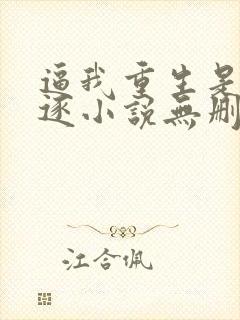 逼我重生是
逐小說無刪
江合佩